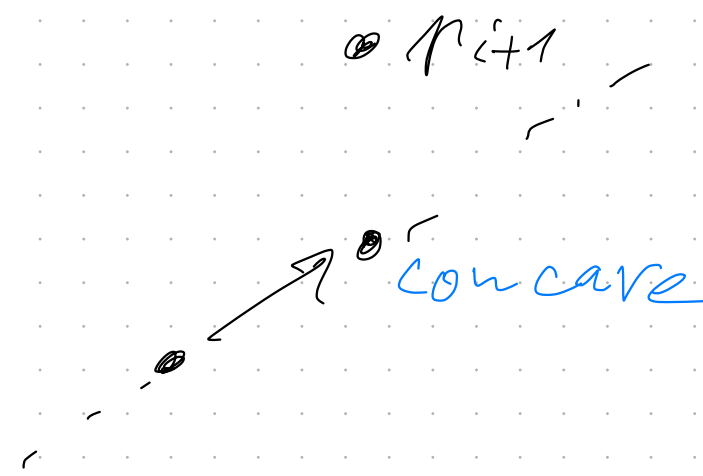 pi+1
concave